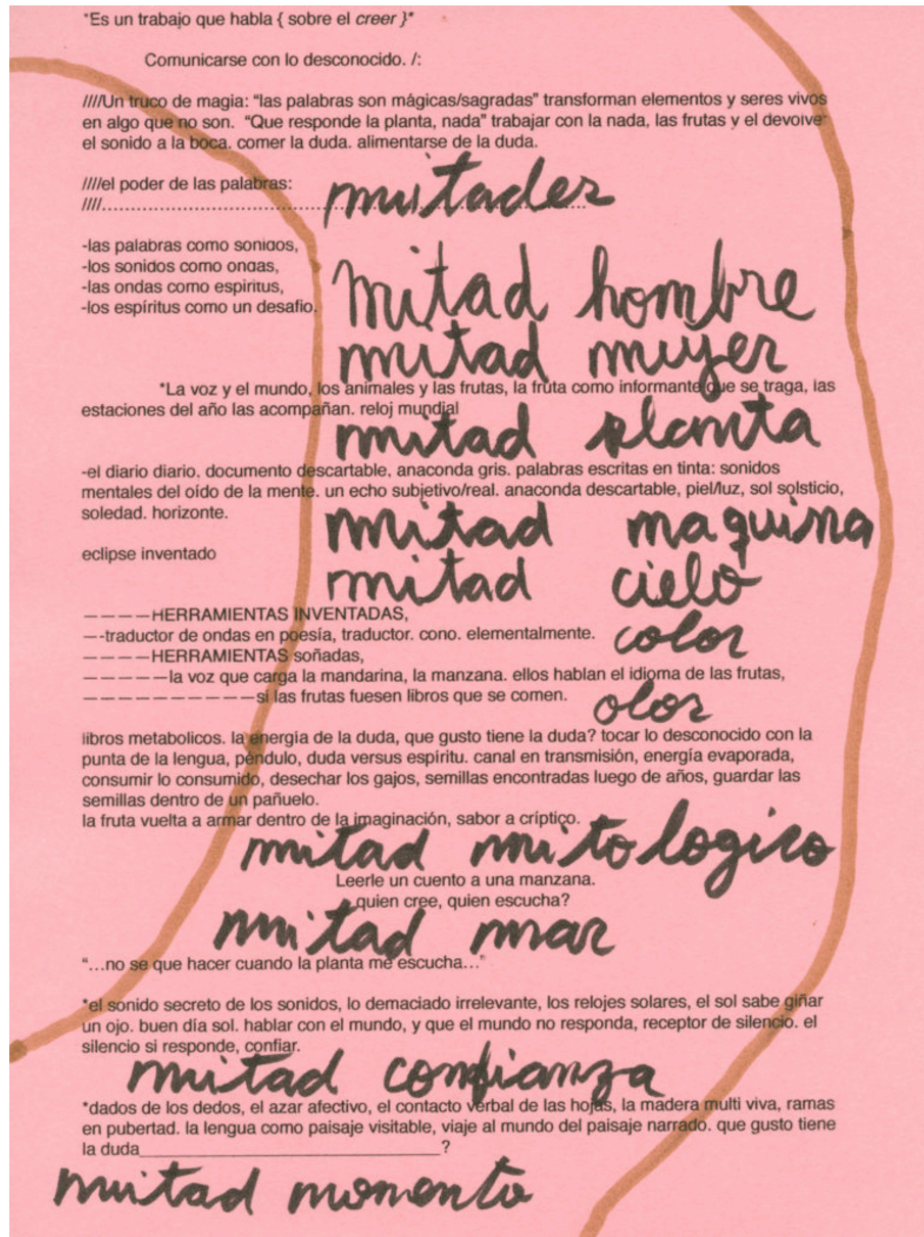 *Es un trabajo que habla { sobre el creer }*
Comunicarse con lo desconocido. /:
////Un truco de magia: “las palabras son mágicas/sagradas” transforman elementos y seres vivos
en algo que no son. “Que responde la planta, nada” trabajar con la nada, las frutas y el devolver
el sonido a la boca. comer la duda. alimentarse de la duda.
////el poder de las palabras:
mitades
////......................................................................................
-las palabras como sonidos,
-los sonidos como ondas,
-las ondas como espiritus,
-los espíritus como un desafio.
mitad hombre
mitad mujer
*La voz y el mundo, los animales y las frutas, la fruta como informante que se traga, las
estaciones del año las acompañan. reloj mundial
mitad planta
-el diario diario. documento descartable, anaconda gris. palabras escritas en tinta: sonidos
mentales del oído de la mente. un echo subjetivo/real. anaconda descartable, piel/luz, sol solsticio,
soledad. horizonte.
mitad maquina
eclipse inventado
mitad cielo
————HERRAMIENTAS INVENTADAS,
—-traductor de ondas en poesía, traductor. cono. elementalmente.
color
————HERRAMIENTAS soñadas,
—————la voz que carga la mandarina, la manzana. ellos hablan el idioma de las frutas,
——————————si las frutas fuesen libros que se comen.
olor
libros metabolicos. la energía de la duda, que gusto tiene la duda? tocar lo desconocido con la
punta de la lengua, péndulo, duda versus espiritu. canal en transmisión, energía evaporada,
consumir lo consumido, desechar los gajos, semillas encontradas luego de años, guardar las
semillas dentro de un pañuelo.
la fruta vuelta a armar dentro de la imaginación, sabor a críptico.
mitad mitologico
Leerle un cuento a una manzana.
quien cree, quien escucha?
mitad mar
“...no se que hacer cuando la planta me escucha...”
*el sonido secreto de los sonidos, lo demaciado irrelevante, los relojes solares, el sol sabe giñar
un ojo. buen día sol. hablar con el mundo, y que el mundo no responda, receptor de silencio. el
silencio si responde, confiar.
mitad confianza
*dados de los dedos, el azar afectivo, el contacto verbal de las hojas, la madera multi viva, ramas
en pubertad. la lengua como paisaje visitable, viaje al mundo del paisaje narrado. que gusto tiene
la duda______________________________?
mitad momento